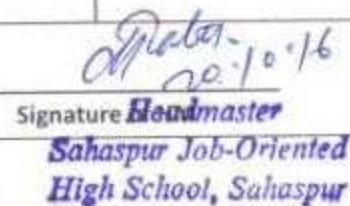 20.10.16
Signature Headmaster
Sahaspur Job-Oriented
High School, Sahaspur